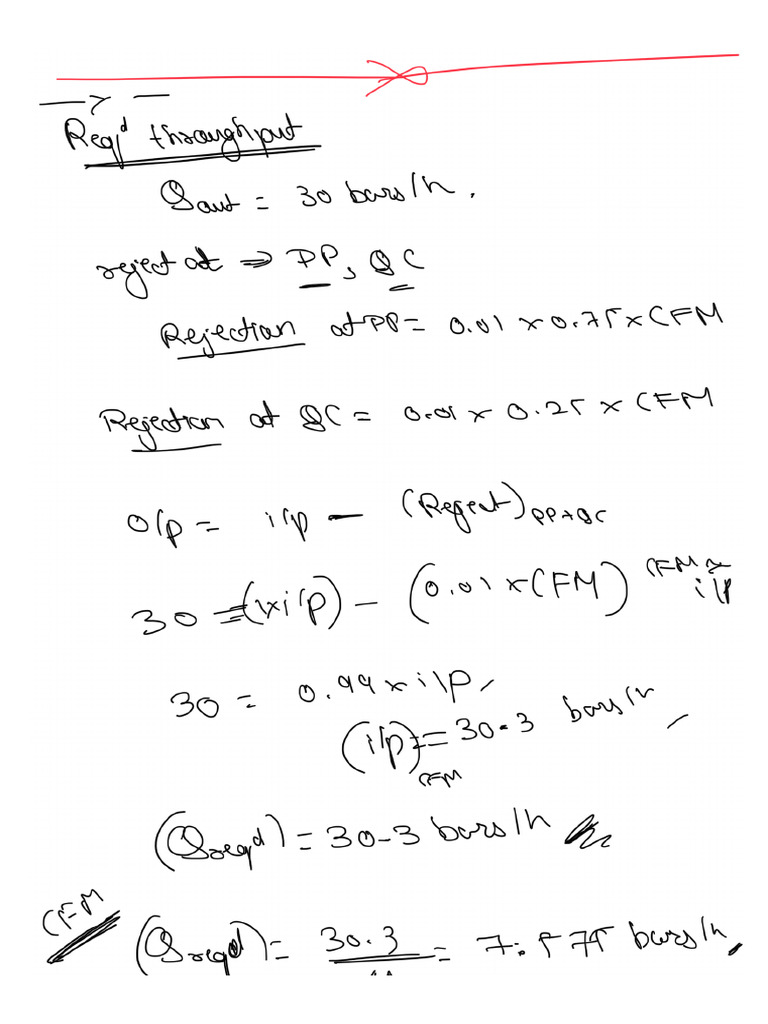 Reqd throughput
Qout = 30 bars/h.
reject at ⇒ PP, QC
Rejection at PP = 0.01 x 0.75 x CFM
Rejection at QC = 0.01 x 0.25 x CFM
O/p = i/p - (Reject) PP+QC
30 = (1xi/p) - (0.01 x CFM) CFM ≈ i/p
30 = 0.99 x i/p
(i/p) CFM = 30.3 bars/h
(Qreqd) = 30.3 bars/h
CFM (Qreqd) = 30.3 / = 7.575 bars/h